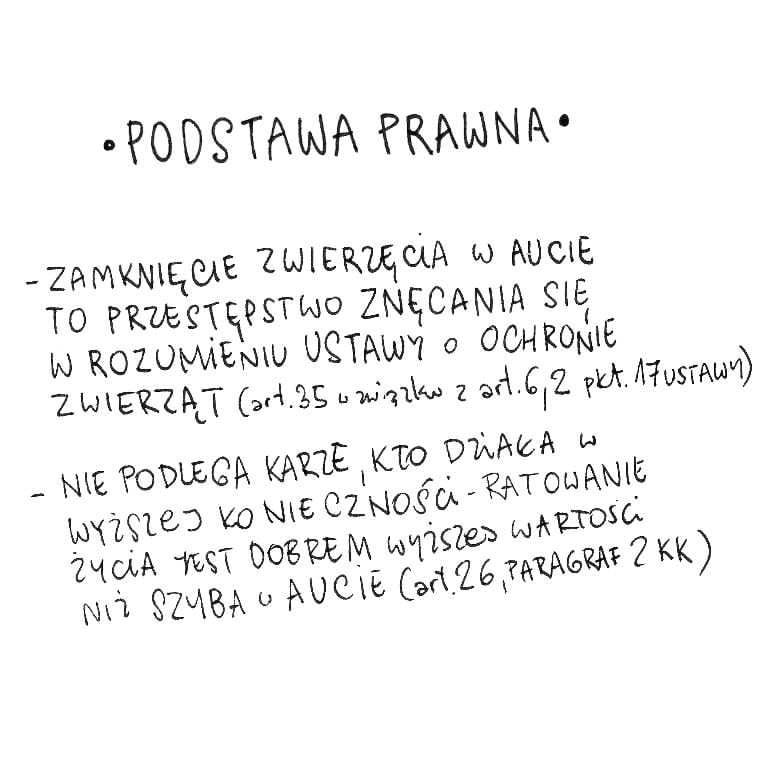 • PODSTAWA PRAWNA •
- ZAMKNIĘCIE ZWIERZĘCIA W AUCIE
TO PRZESTĘPSTWO ZNĘCANIA SIĘ
W ROZUMIENIU USTAWY O OCHRONIE
ZWIERZĄT (art.35 w związku z art.6,2 pkt.17 USTAWY)
- NIE PODLEGA KARZE, KTO DZIAŁA W
WYŻSZEJ KONIECZNOŚCI - RATOWANIE
ŻYCIA JEST DOBREM WYŻSZEJ WARTOŚCI
NIŻ SZYBA W AUCIE (art.26, PARAGRAF 2 KK)